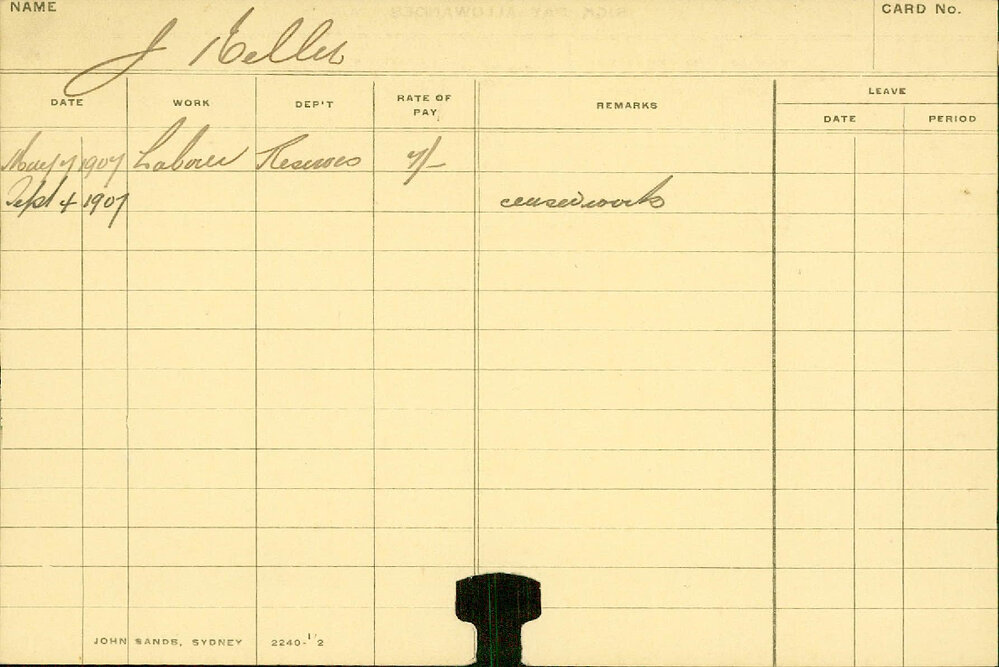 NAME
CARD No.
J Keller
DATE WORK DEP'T RATE OF PAY REMARKS LEAVE
DATE PERIOD
May 7 1907 Labourer Reserves 7/-
Sept 4 1907 ceased work
JOHN SANDS, SYDNEY 2240-1/2